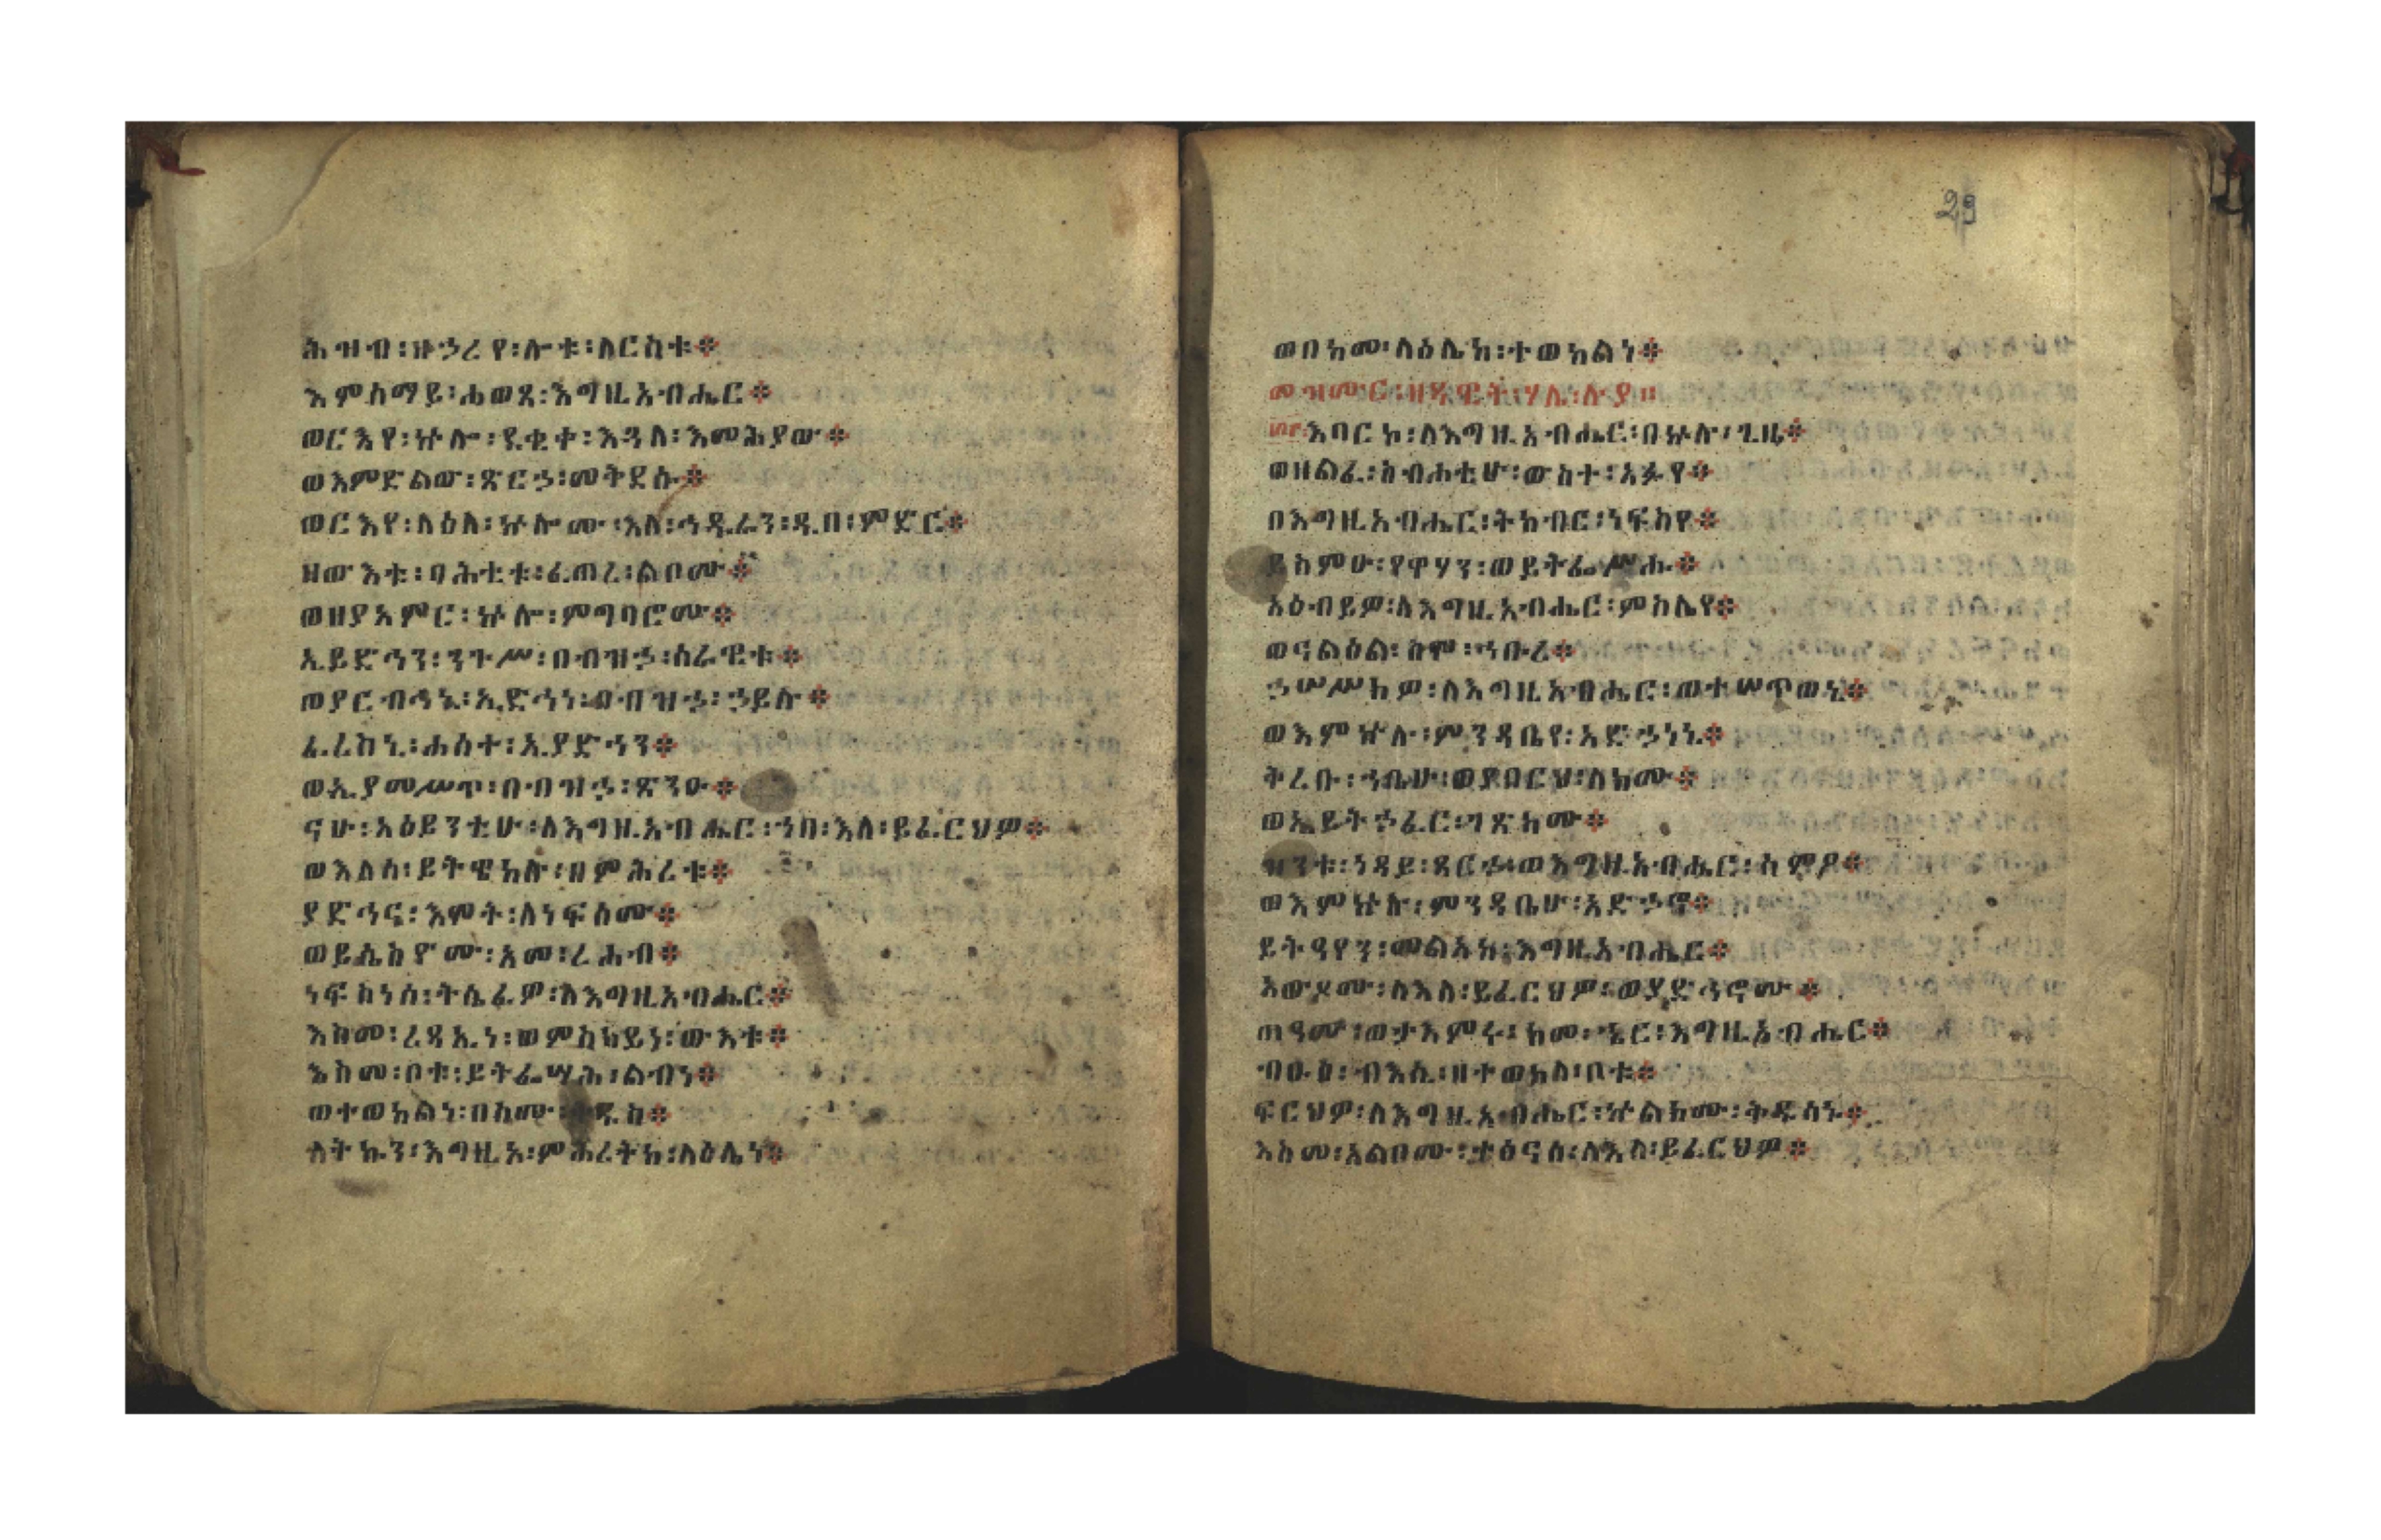 ሕዝብ፡ዘኃረየ፡ሎቱ፡ለርስቱ፨
እምሰማይ፡ሐወጸ፡እግዚአብሔር፨
ወርእየ፡ኵሎ፡ደቂቀ፡እጓለ፡እመሕያው፨
ወእምድልው፡ጽርኀ፡መቅደሱ፨
ወርእየ፡ላዕለ፡ኵሎሙ፡እለ፡ኅዱራን፡ዲበ፡ምድር፨
ዘውእቱ፡ባሕቲቱ፡ፈጠረ፡ልቦሙ፨
ወዘያአምር፡ኵሎ፡ምግባሮሙ፨
ኢይድኅን፡ንጉሥ፡በብዝኃ፡ሰራዊቱ፨
ወያርብኅኒ፡ኢድኅነ፡በብዝኃ፡ኃይሉ፨
ፈረስኒ፡ሐሰተ፡ኢያድኅን፨
ወኢያመሥጥ፡በብዝኃ፡ጽንዑ፨
ናሁ፡አዕይንቲሁ፡ለእግዚአብሔር፡ኀበ፡እለ፡ይፈርህዎ፨
ወእለሰ፡ይትዌከሉ፡በምሕረቱ፨
ያድኅና፡እሞት፡ለነፍሶሙ፨
ወይሴስዮሙ፡አመ፡ረሐብ፨
ነፍስነሰ፡ትሴፈዎ፡ለእግዚአብሔር፨
እስመ፡ረዳኢነ፡ወምስካይነ፡ውእቱ፨
እስመ፡ቦቱ፡ይትፌሣሕ፡ልብነ፨
ወተወከልነ፡በስሙ፡ቅዱስ፨
ለትኩን፡እግዚኦ፡ምሕረትከ፡ላዕሌነ፨
29
ወበከመ፡ላዕሌከ፡ተወከልነ፨
መዝሙር፡ዘዳዊት፡ሃሌ፡ሉያ።
፴፫እባርኮ፡ለእግዚአብሔር፡በኵሉ፡ጊዜ፨
ወዘልፈ፡ስብሐቲሁ፡ውስተ፡አፉየ፨
በእግዚአብሔር፡ትከብር፡ነፍስየ፨
ይስምዑ፡የዋሃን፡ወይትፌሥሑ፨
አዕብይዎ፡ለእግዚአብሔር፡ምስሌየ፨
ወናልዕል፡ስሞ፡ኅቡረ፨
ኃሠሥክዎ፡ለእግዚአብሔር፡ወተሠጥወኒ፨
ወእምኵሉ፡ምንዳቤየ፡አድኃነኒ፨
ቅረቡ፡ኀቤሁ፡ወያበርህ፡ለክሙ፨
ወኢይትኃፈር፡ገጽክሙ፨
ዝንቱ፡ነዳይ፡ጸርኀ፡ወእግዚአብሔር፡ሰምዖ፨
ወእምኵሉ፡ምንዳቤሁ፡አድኃኖ፨
ይትዓየን፡መልአከ፡እግዚአብሔር፨
አውዶሙ፡ለእለ፡ይፈርህዎ፡ወያድኅኖሙ፨
ጠዓሙ፡ወታእምሩ፡ከመ፡ኄር፡እግዚአብሔር፨
ብፁዕ፡ብእሲ፡ዘተወከለ፡ቦቱ፨
ፍርህዎ፡ለእግዚአብሔር፡ኵልክሙ፡ቅዱሳኑ፨
እስመ፡አልቦሙ፡ተፅናስ፡ለእለ፡ይፈርህዎ፨